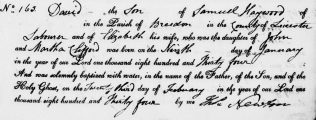 No. 163. David — the Son of Samuel Haywood of
in the Parish of Breedon in the County of Leicester
Labourer and of Elizabeth his wife, who was the daughter of John
and Martha Clifford was born on the Ninth day of January
in the year of our Lord one thousand eight hundred and Thirty four
And was solemnly baptised with water, in the name of the Father, of the Son, and of the
Holy Ghost, on the Twenty third day of February in the year of our Lord one
thousand eight hundred and Thirty four by me Thos. Newton